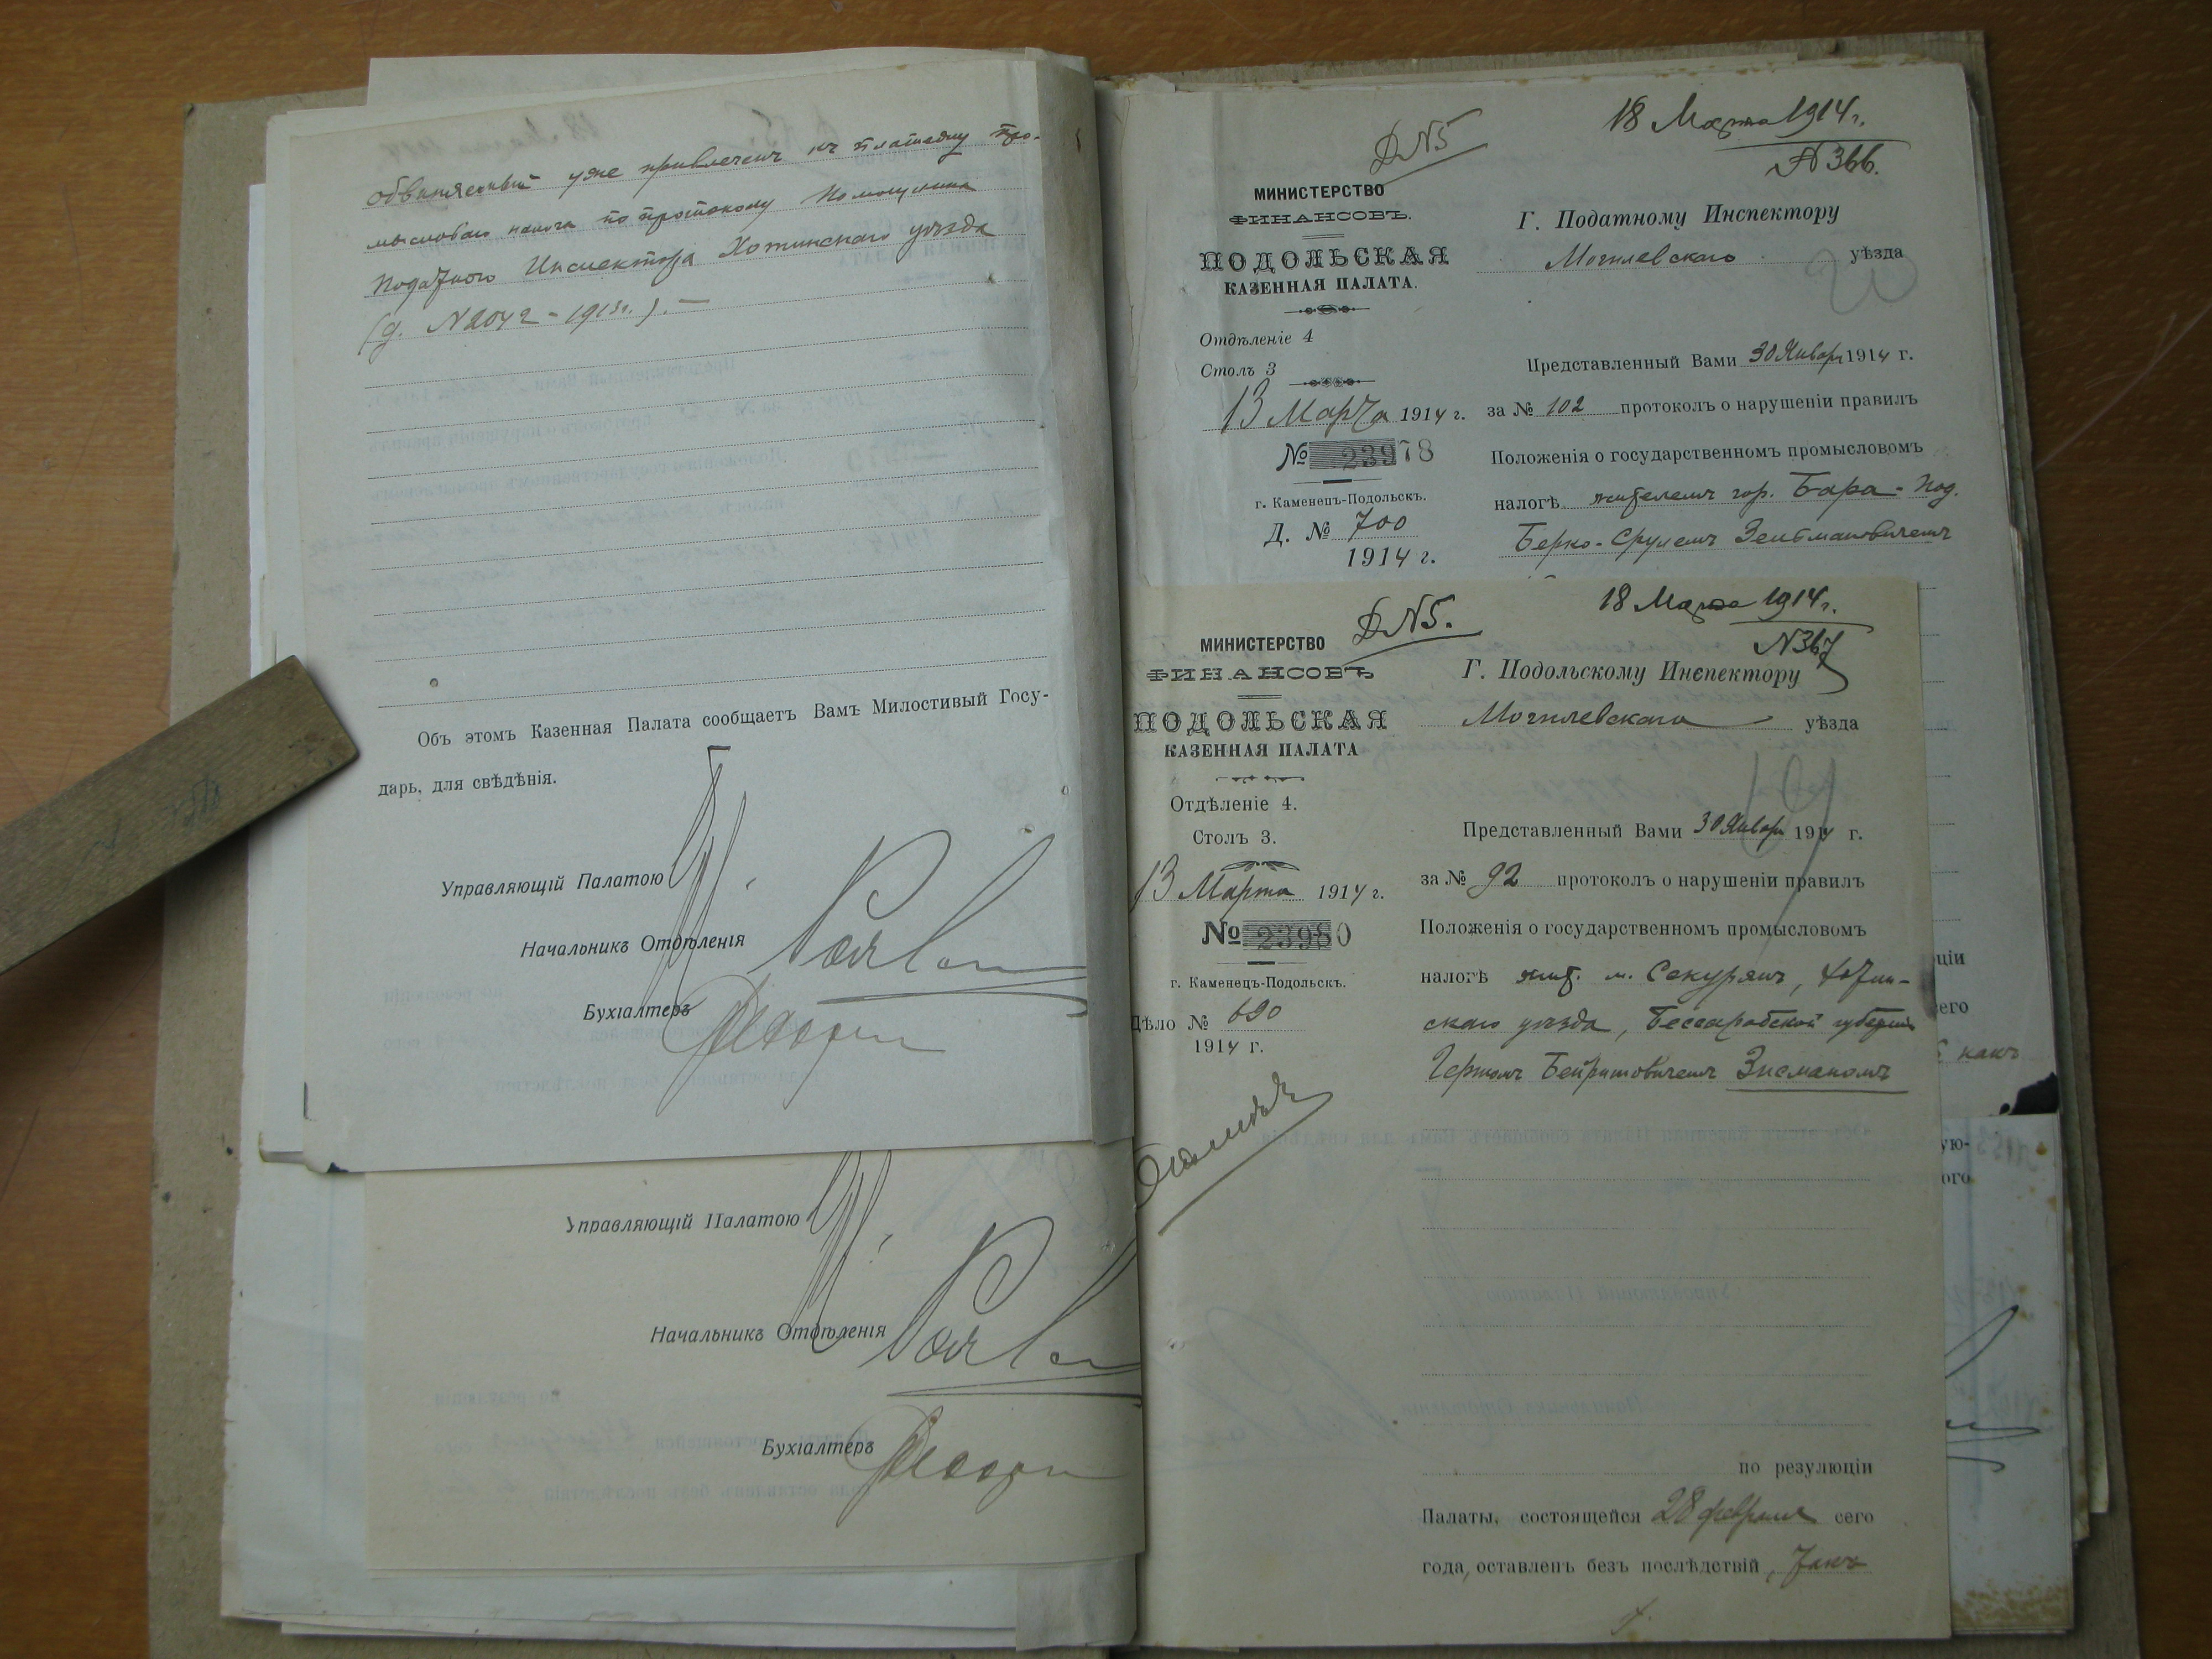 обвиняемый уже привлеченъ къ платежу про-
мысловаго налога по протоколу Помощника
Податного Инспектора Хотинскаго уѣзда
(д. N 2042 - 1913г.). —
Объ этомъ Казенная Палата сообщаетъ Вамъ Милостивый Госу-
дарь, для свѣдѣнія.
Управляющій Палатою
Начальникъ Отдѣленія
Бухгалтеръ
Управляющій Палатою
Начальникъ Отдѣленія
Бухгалтеръ
18 Марта 1914г.
N 366.
Д. N5
МИНИСТЕРСТВО
ФИНАНСОВЪ.
ПОДОЛЬСКАЯ
КАЗЕННАЯ ПАЛАТА.
Отдѣленіе 4
Столъ 3
13 Марта 1914 г.
№ 23978
г. Каменецъ-Подольскъ.
Д. № 700
1914 г.
Г. Податному Инспектору
Могилевскаго уѣзда
Представленный Вами 30 Января 1914 г.
за № 102 протоколъ о нарушеніи правилъ
Положенія о государственномъ промысловомъ
налогѣ жителемъ гор. Бара - Под.
Берко-Срулемъ
18 Марта 1914г.
N 367
Д. N5.
МИНИСТЕРСТВО
ФИНАНСОВЪ
ПОДОЛЬСКАЯ
КАЗЕННАЯ ПАЛАТА
Отдѣленіе 4.
Столъ 3.
13 Марта 1914 г.
№ 23980
г. Каменецъ-Подольскъ.
Дѣло № 690
1914 г.
Г. Подольскому Инспектору
Могилевскаго уѣзда
Представленный Вами 30 Января 1914 г.
за № 92 протоколъ о нарушеніи правилъ
Положенія о государственномъ промысловомъ
налогѣ жит. м. Секурянъ, Хотин-
скаго уѣзда, Бессарабской губерніи
Зисманомъ
по резулюціи
Палаты, состоящейся 28 февраля сего
года, оставленъ безъ послѣдствій, такъ
ціи
сего
какъ
ую-
ого